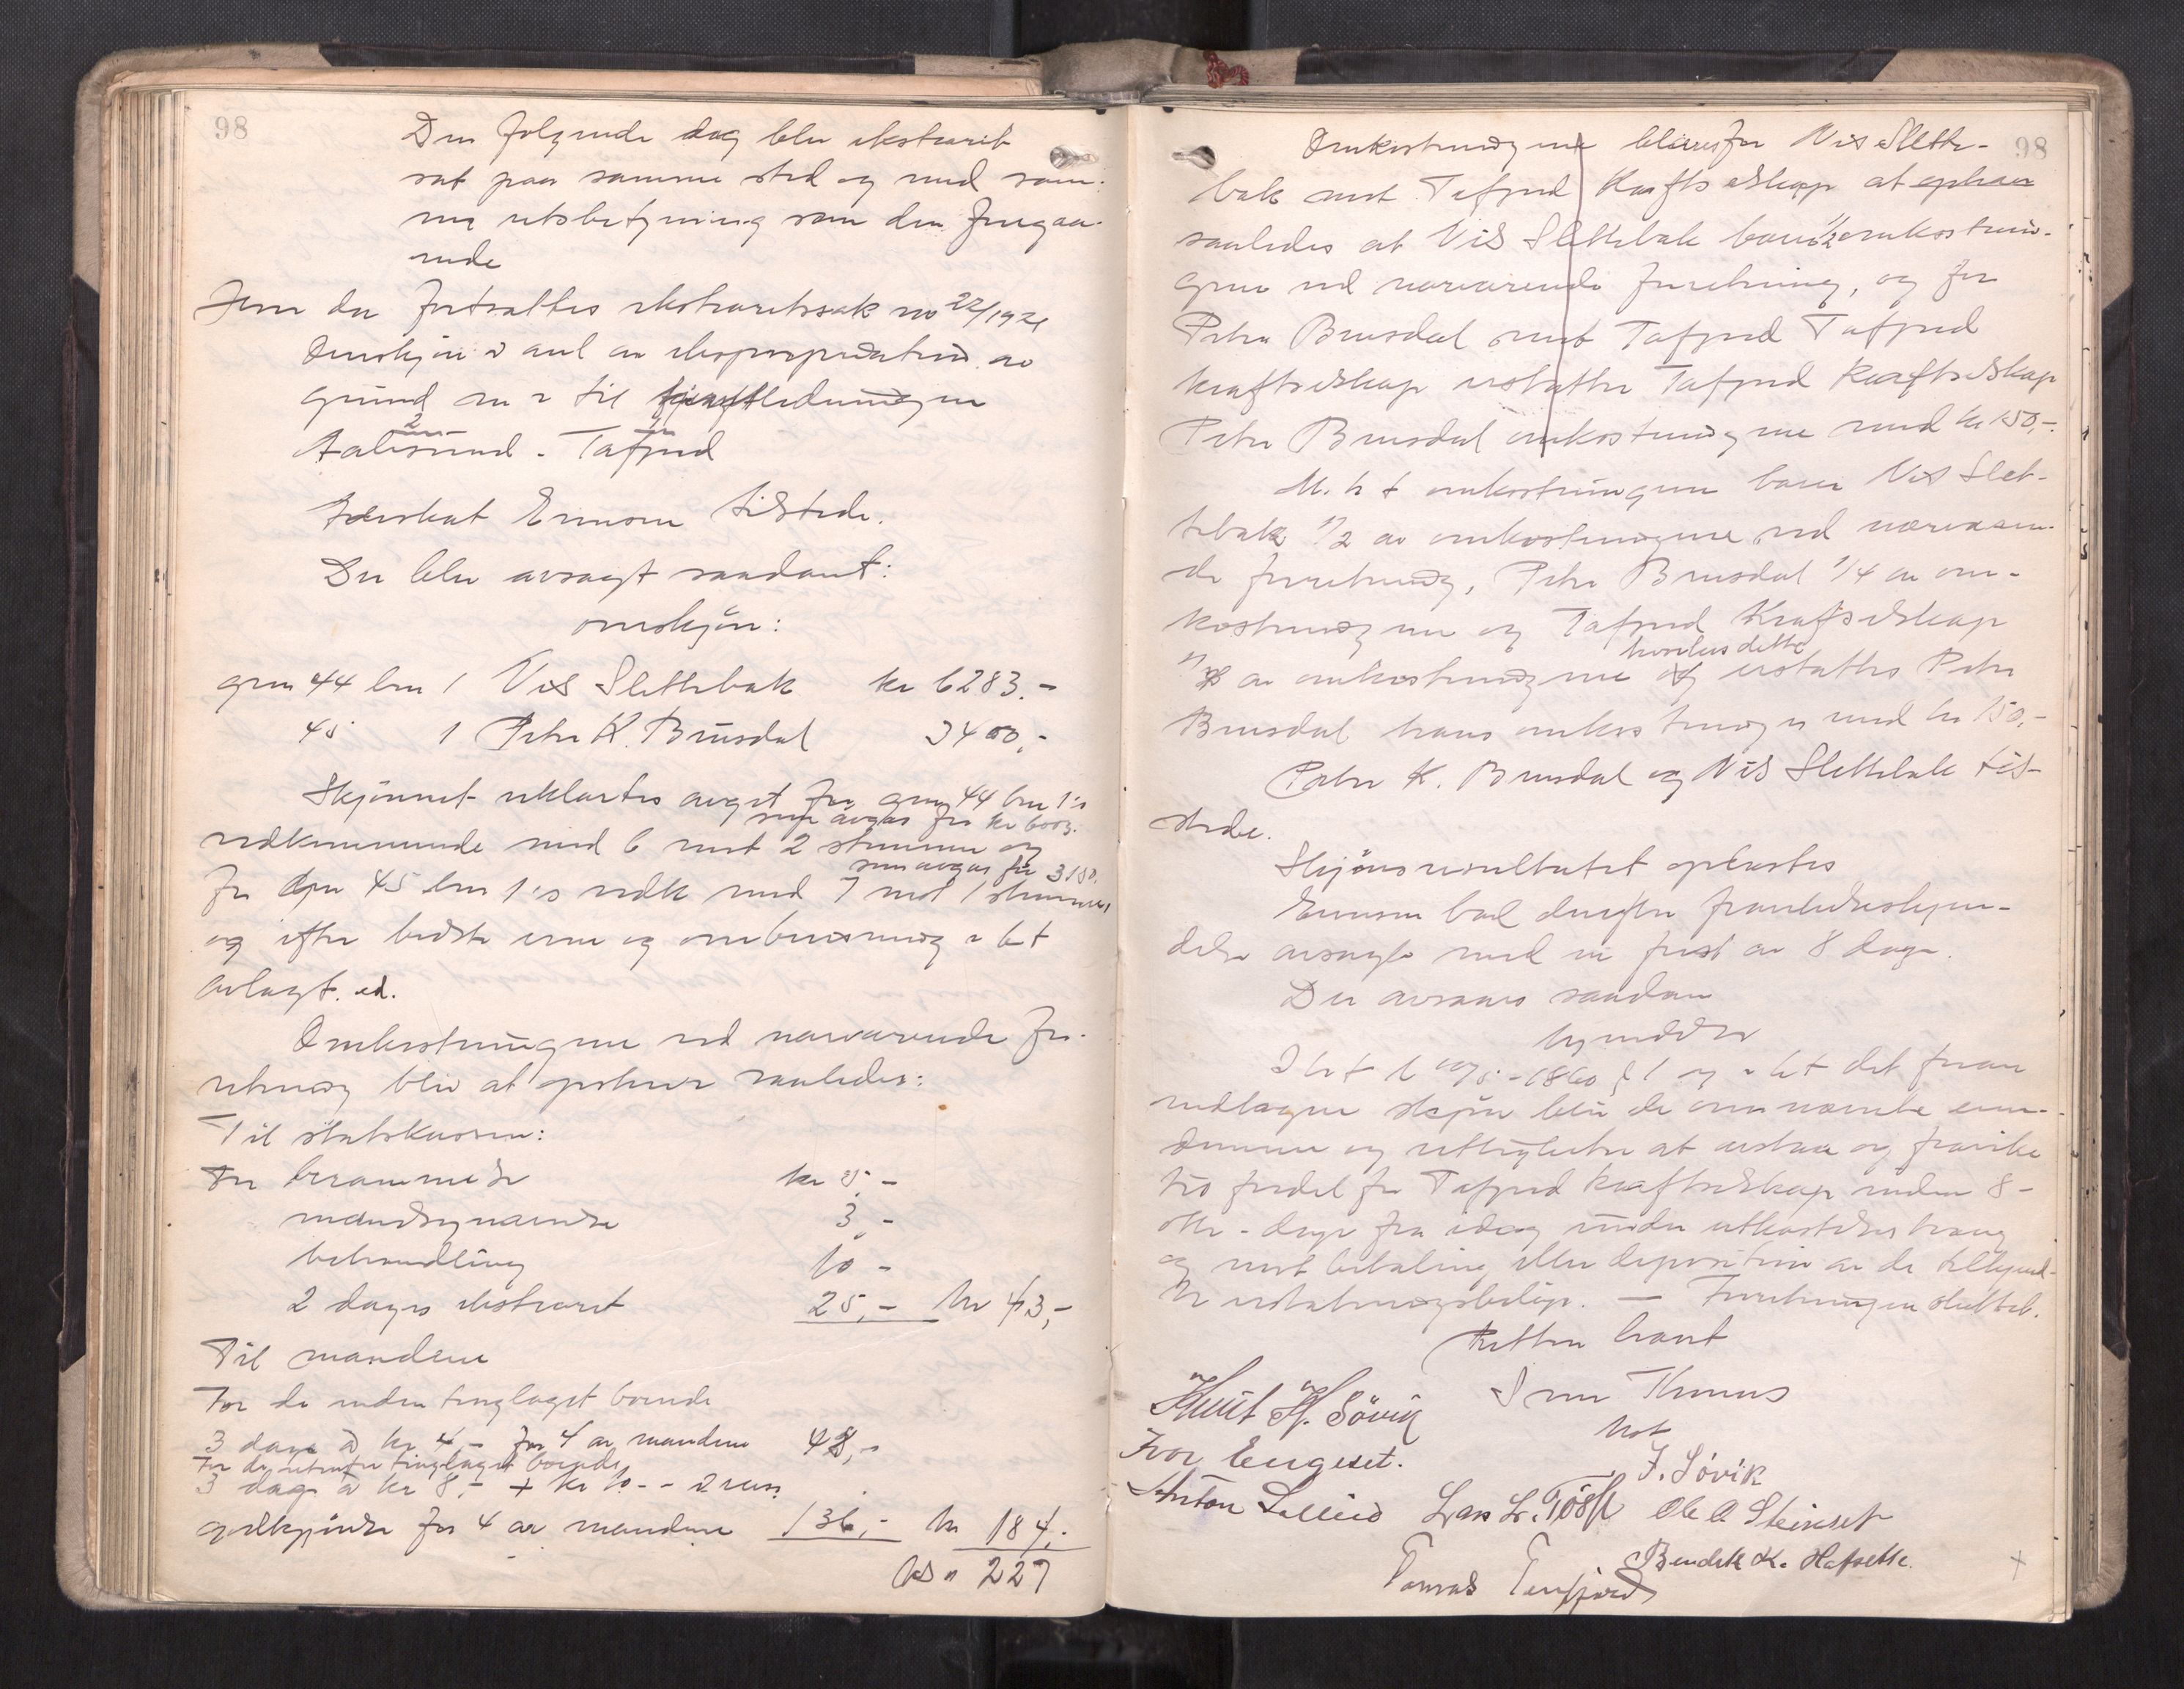 98
Den følgende dag blev ekstraret
sat paa samme sted og med sam-
me retsbetjening som den foregaa-
ende
Hvor da fortsattes ekstraretssak no 22/1921
Omskjøn i anl av ekspropriation av
grund m v til kraftledningen
Aalesund - Tafjord
Advokat Ennson tilstede.
Der blev avsagt saadant:
omskjøn:
gnr 44 bnr 1 Nils Slettebak kr 6283.-
45 1 Peter K. Brusdal 3400,-
Skjønnet erklærtes avgit for gnr 44 bnr 1's
som avgav for kr 6003.
vedkommende med 6 mot 2 stemmer og
som avgav for 3150.
for gnr 45 bnr 1's vedk med 7 mot 1 stemmer
og efter bedste evne og overbevisning i h t
avlagt ed.
Omkostningene ved nærværende for-
retning blir at opføre saaledes:
Til statskassen:
For berammelse kr 5,-
mandsopnævnelse 3,-
behandling 10 -
2 dages ekstraret 25,- kr 43,-
Til mændene
For de inden tinglaget boende
3 dage à kr 4 - for 4 av mændene 48,-
For de utenfor tinglaget boende
3 dage à kr 8,- + kr 10.- i reise
godtgjørelse for 4 av mændene 136,- kr 184.-
kr 227
98
Omkostningene bæres for Nils Slette-
bak mot Tafjord Kraftselskap at ophæve
saaledes at Nils Slettebak bærer 1/2 omkostnin-
gene ved nærværende forretning, og for
Peter Brusdal mot Tafjord Tafjord
kraftselskap erstatter Tafjord Kraftselskap
Peter Brusdal omkostningene med kr 150,-.
M. h t omkostningene bærer Nils Slet-
tebak 1/2 av omkostningene ved nærværen-
de forretning, Peter Brusdal 1/4 av om-
kostningene og Tafjord Kraftselskap
hvorhos dette
1/4 av omkostningene og erstatter Peter
Brusdal hans omkostninger med kr 150,-
Peter K. Brusdal og Nils Slettebak til-
stede.
Skjønsresultatet oplæstes
Ennson bad derefter fravikelseskjen-
delse avsagt med en frist av 8 dage.
Der avsaaes saadan
kjendelse
I h t l 10/5 - 1860 § 1 og i h t det foran
vedtagne skjøn blir de omnævnte eien-
domme og rettigheter at avstaa og fravike
til fordel for Tafjord Kraftselskap inden 8 -
otte - dage fra idag under utkastelses tvang
og mot betaling eller deposition av de tilkjend-
te erstatningsbeløp. — Forretningen sluttet.
Retten hævet
Knut H. Søvik
Ivar Engeset.
J. Søvik
Anton Lillebø Lars L. Tøsse Ole A Steinset
Bendik K. Hofseth.
Tomas Tenfjord